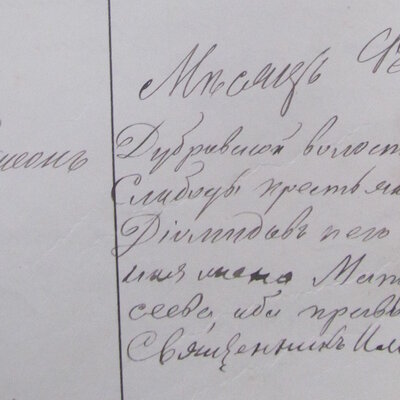 Мѣсяцъ Фе
меонъ
Дубравской волост
Слободы крестьян
Діомидовъ и его
ная жена Мат
сеева, оба правос
Священникъ Или